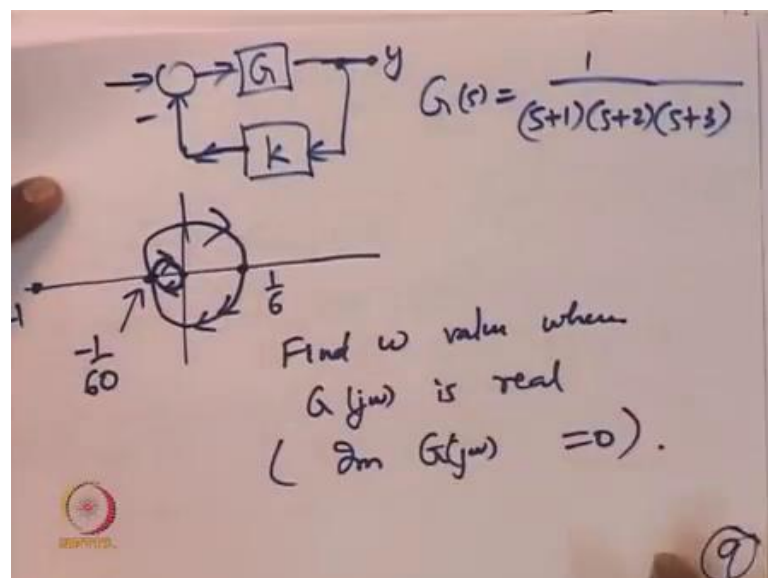 G
y
k
-
G(s) = 1 / (s+1)(s+2)(s+3)
-1
1/6
-1/60
Find ω value when
G(jω) is real
( Im G(jω) = 0 ).
NPTEL
9